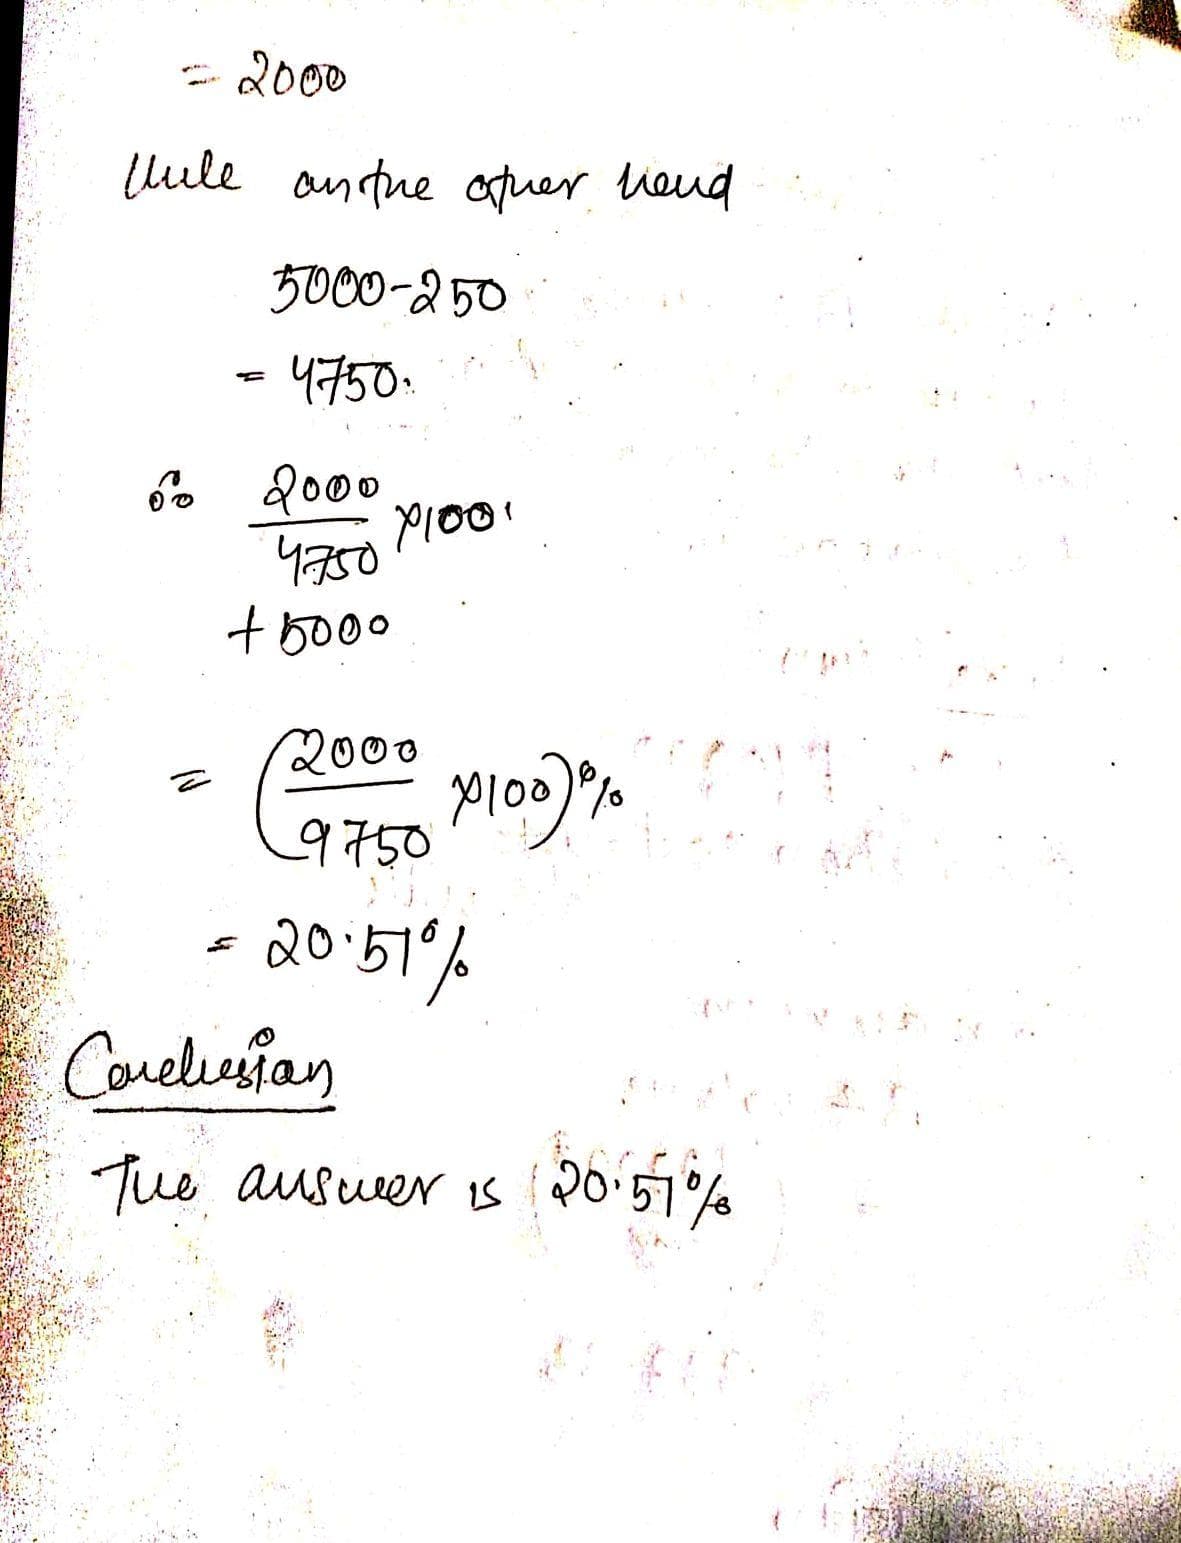 = 2000
While on the other hand
5000-250
= 4750.
∴ 2000
4750 ×100
+ 5000
= (2000
9750 ×100)%
= 20.51%
Conclusion
The answer is 20.51%